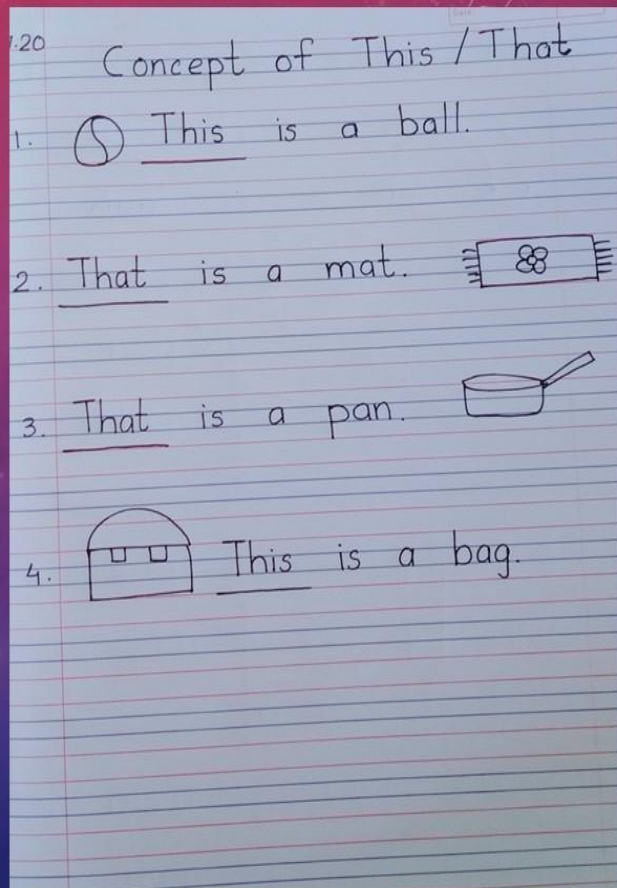 .20
Concept of This / That
1. This is a ball.
2. That is a mat.
3. That is a pan.
4. This is a bag.